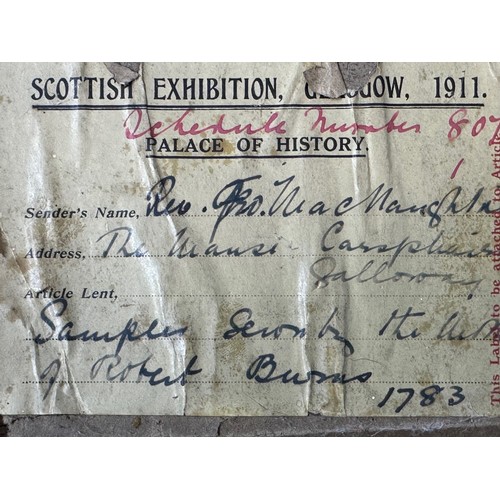 SCOTTISH EXHIBITION, GLASGOW, 1911.
Schedule Number 807
PALACE OF HISTORY.
Sender's Name, Rev. MacNaught
Address, The Manse Carsphairn
Galloway
Article Lent,
Sampler sewn by the
of Robert Burns
1783
This Label to be attached to Article